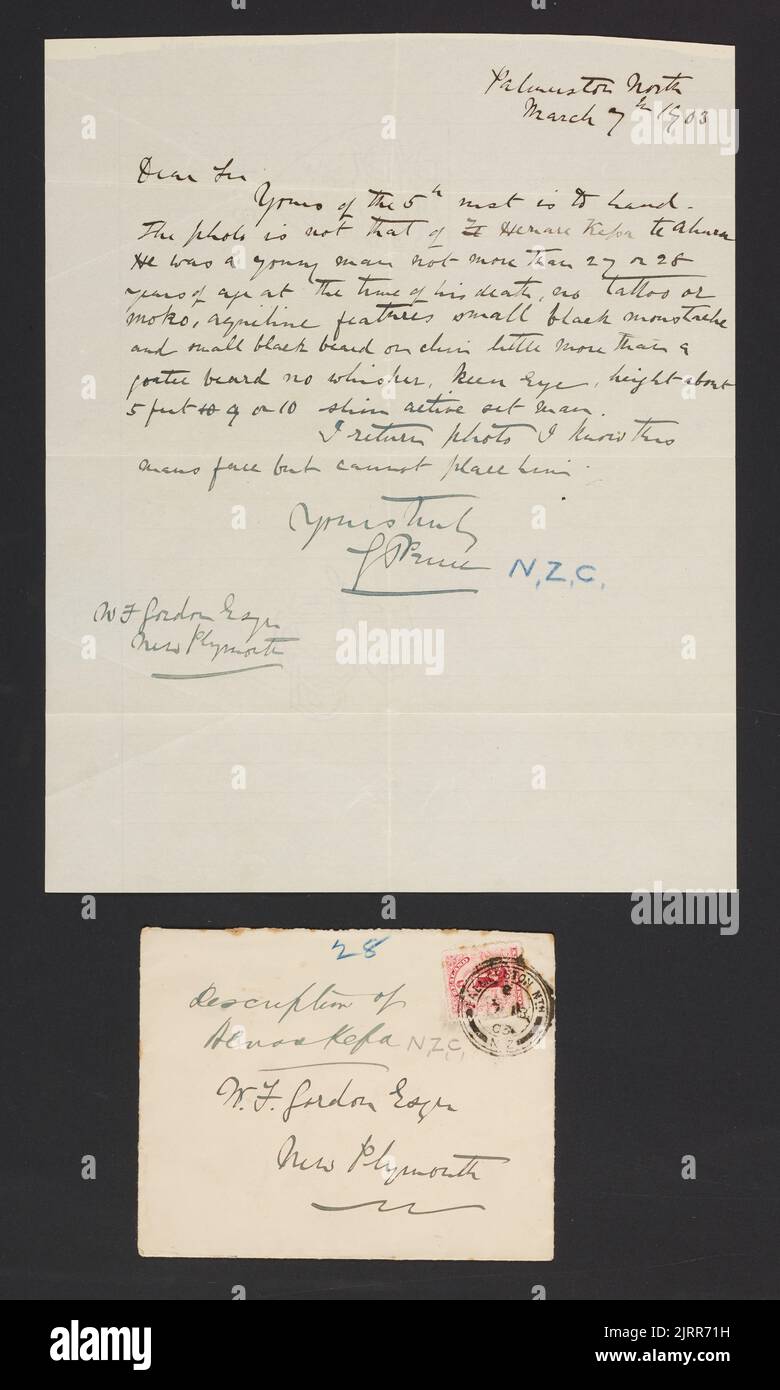 Palmerston North
March 7th 1903
Dear Sir
Yours of the 5th inst is to hand.
The photo is not that of Henare Kepa te Ahuru
He was a young man not more than 27 or 28
years of age at the time of his death, no tattoo or
moko, aquiline features small black moustache
and small black beard on chin little more than a
goatee beard no whisker, keen eye, height about
5 feet 9 or 10 slim active set man.
I return photo I know this
mans face but cannot place him.
Yours truly
N.Z.C.
W F Gordon Esqre
New Plymouth
28
Description of
Kepa N.Z.C.
W. F. Gordon Esqre
New Plymouth
PALMERSTON NTH
03
N.Z
alamy
Image ID: 2JRR71H
www.alamy.com